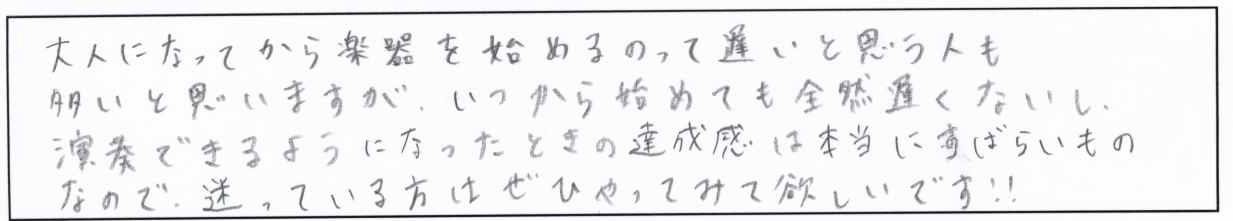 大人になってから楽器を始めるのって遅いと思う人も
多いと思いますが、いつから始めても全然遅くないし、
演奏できるようになったときの達成感は本当にすばらいもの
なので、迷っている方はぜひやってみて欲しいです!!